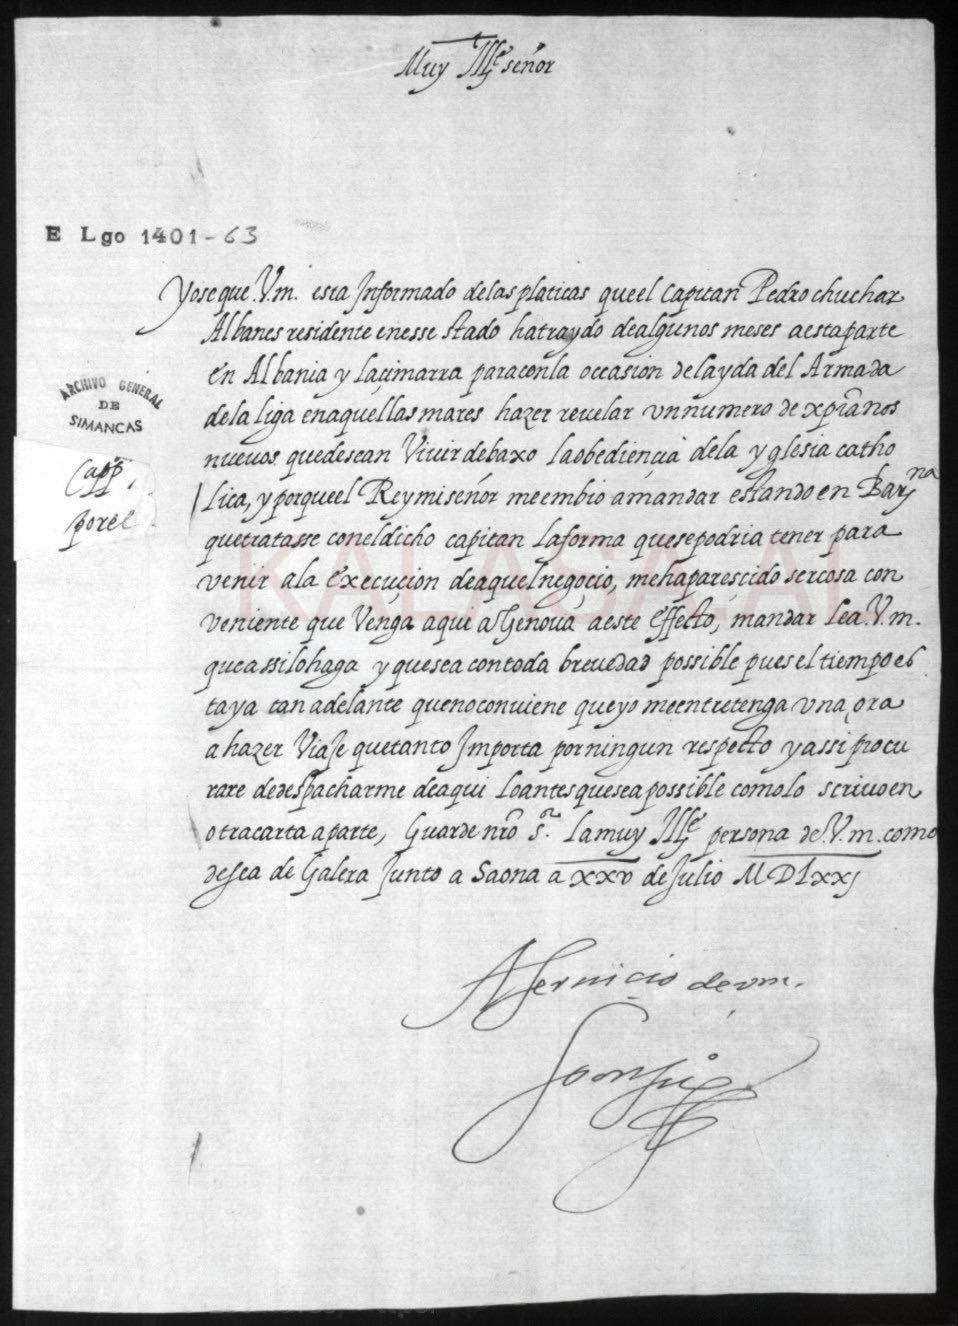 Muy Ille señor
E Lgo 1401-63
Yo se que .V.m. esta Informado de las platicas que el Capitan Pedro chuchar
Albanes residente en esse stado ha traydo de algunos meses a esta parte
en Albania y la çimarra para con la occasion de la yda del Armada
ARCHIVO GENERAL
DE
SIMANCAS
de la liga en aquellas mares hazer revelar un numero de xpianos
nuevos que desean Vivir debaxo la obediençia de la yglesia catho
Capp.
lica, y porque el Rey mi señor me embio a mandar estando en Barna
porel
que tratasse con el dicho capitan la forma que se podria tener para
venir a la execuçion de aquel negoçio, me ha paresçido ser cosa con
veniente que Venga aqui a Genova a este Effecto, mandar lea .V.m.
que assi lo haga y que sea con toda brevedad possible pues el tiempo es
ta ya tan adelante que no conviene que yo me entretenga una ora
a hazer Viaje que tanto Importa por ningun respecto y assi procu
rare de despacharme de aqui lo antes que sea possible como lo scrivo en
otra carta a parte, Guarde nro sr. la muy Ille persona de .V.m. como
desea de Galera Junto a Saona a xxv de Julio MDLxxj
A servicio de vm.
KALASA.AL